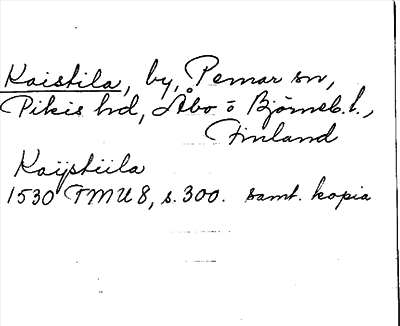 Kaistila, by, Pemar sn,
Pikis hd, Åbo o Björneb. l.,
Finland
Kaÿstiila
1530 TMU 8, s. 300. samt. kopia